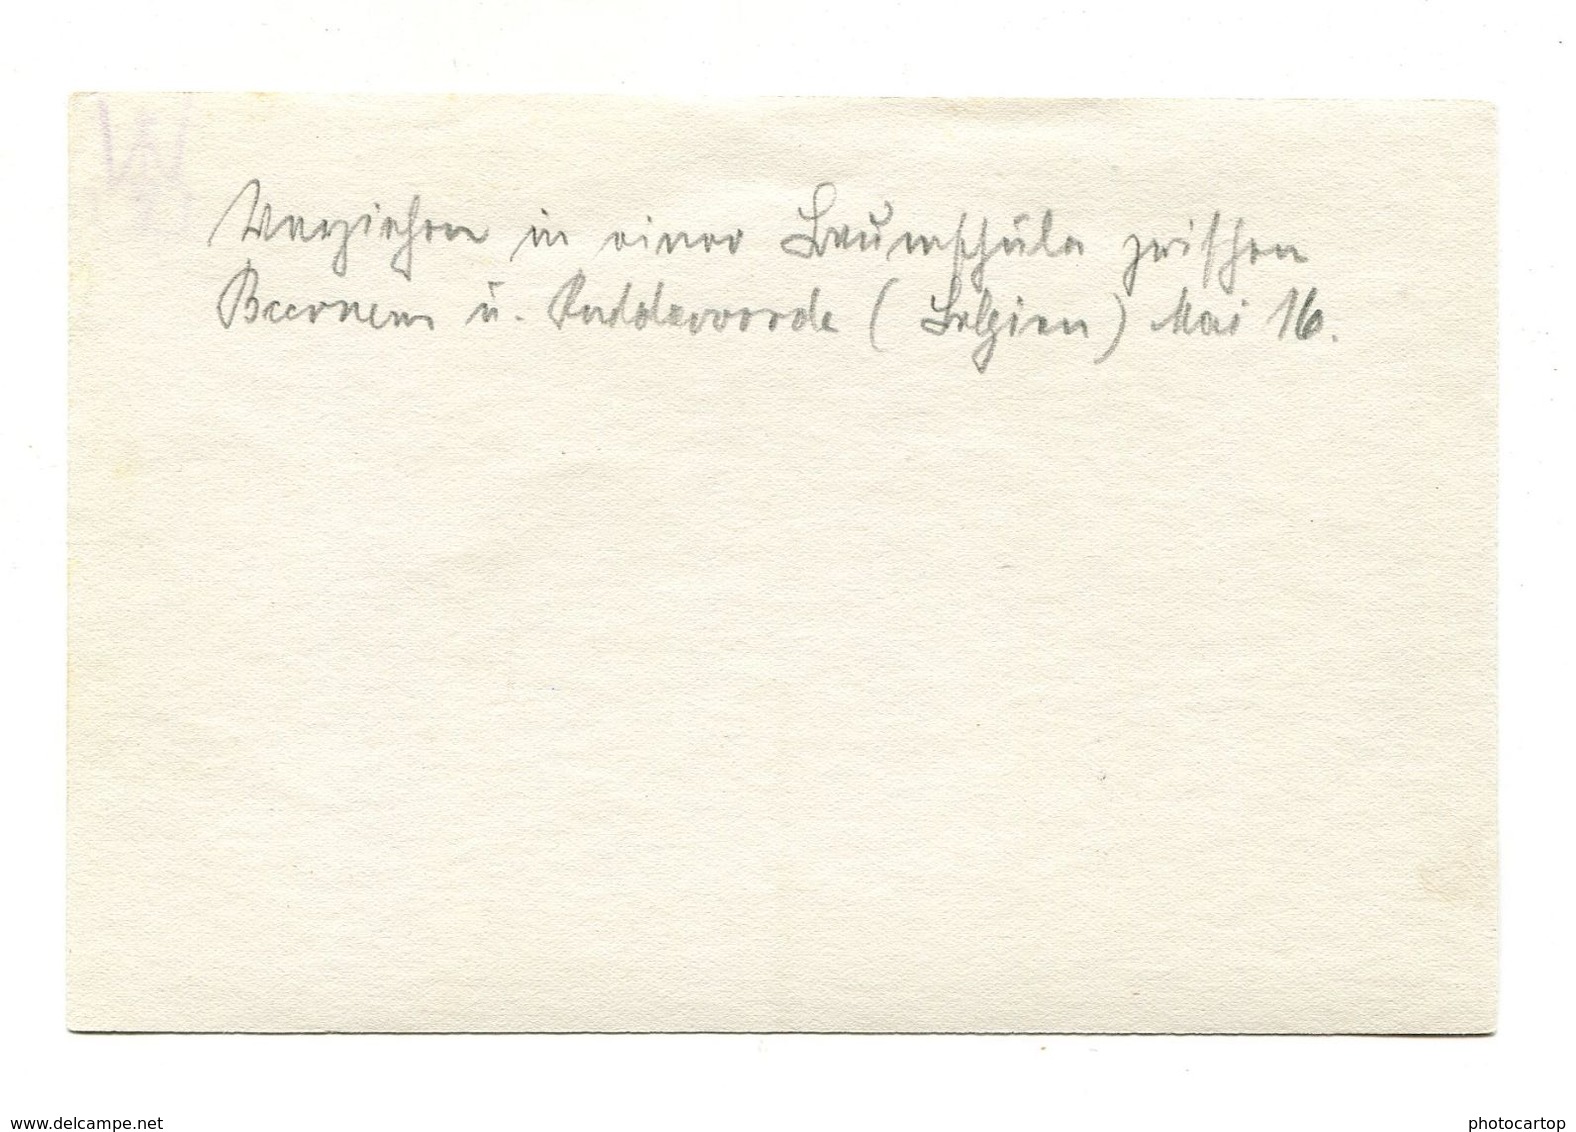 Verziehen in einer Baumschule zwischen
Beernem u. Ruddervoorde (Belgien) Mai 16.
www.delcampe.net
photocartop